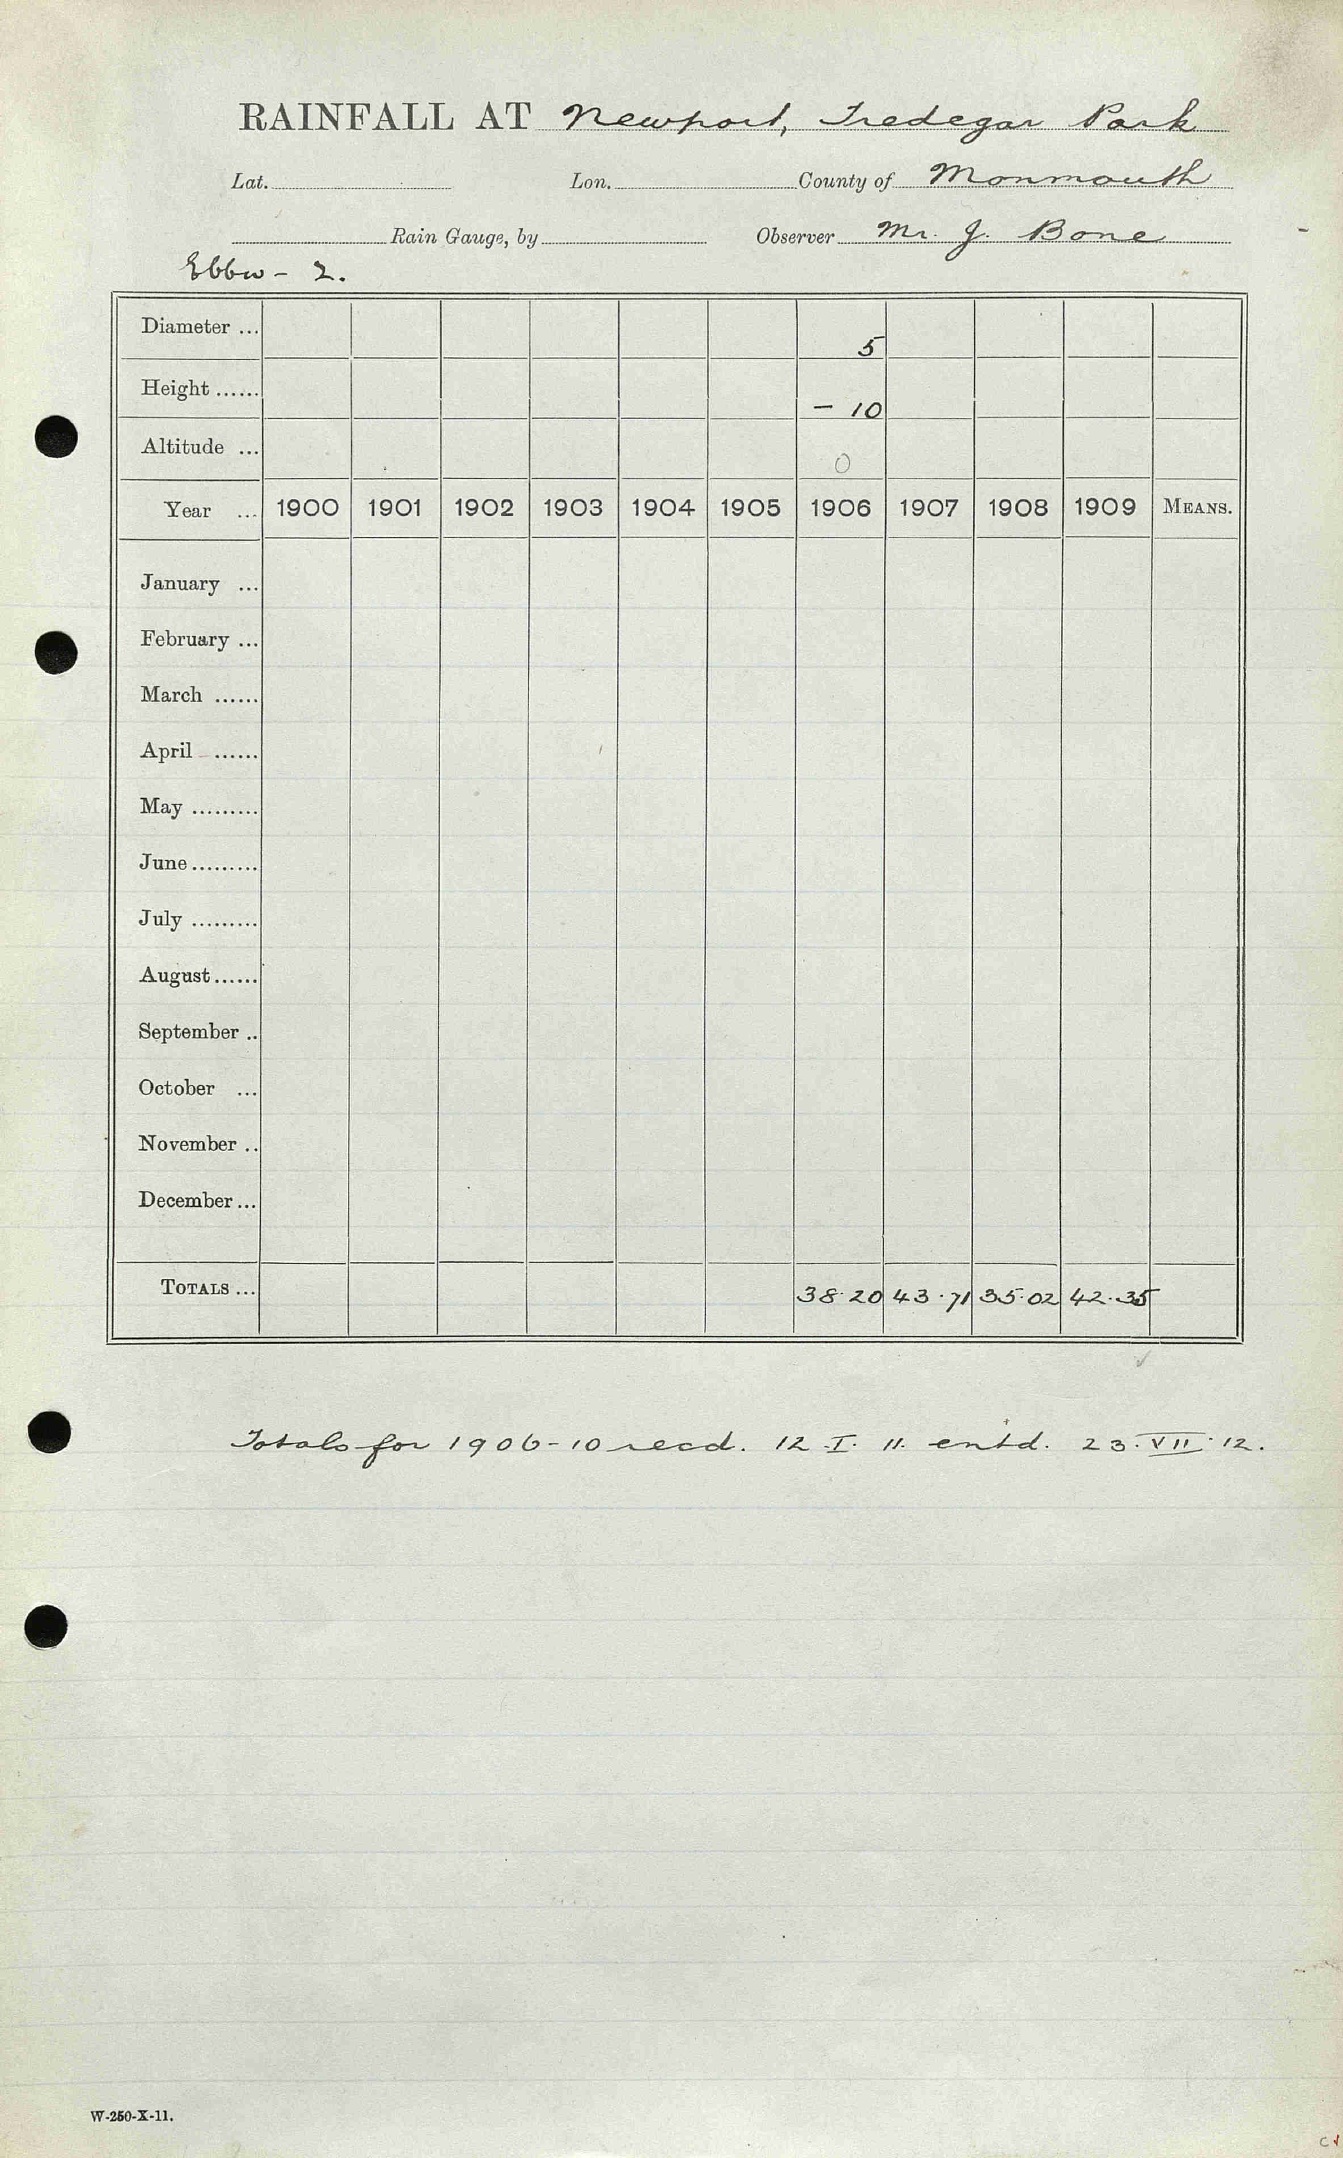 RAINFALL AT Newport, Tredegar Park
Lat. Lon. County of Monmouth
Rain Gauge, by Observer Mr. J. Bone
Ebbw - 2.
Diameter ... 5
Height ...... - 10
Altitude ... 0
Year ... 1900 1901 1902 1903 1904 1905 1906 1907 1908 1909 MEANS.
January ...
February ...
March ......
April ......
May .........
June .........
July .........
August ......
September ..
October ...
November ..
December ...
TOTALS ... 38.20 43.71 35.02 42.35
Totals for 1906-10 recd. 12.I.11. entd. 23.VII.12.
W-250-X-11.